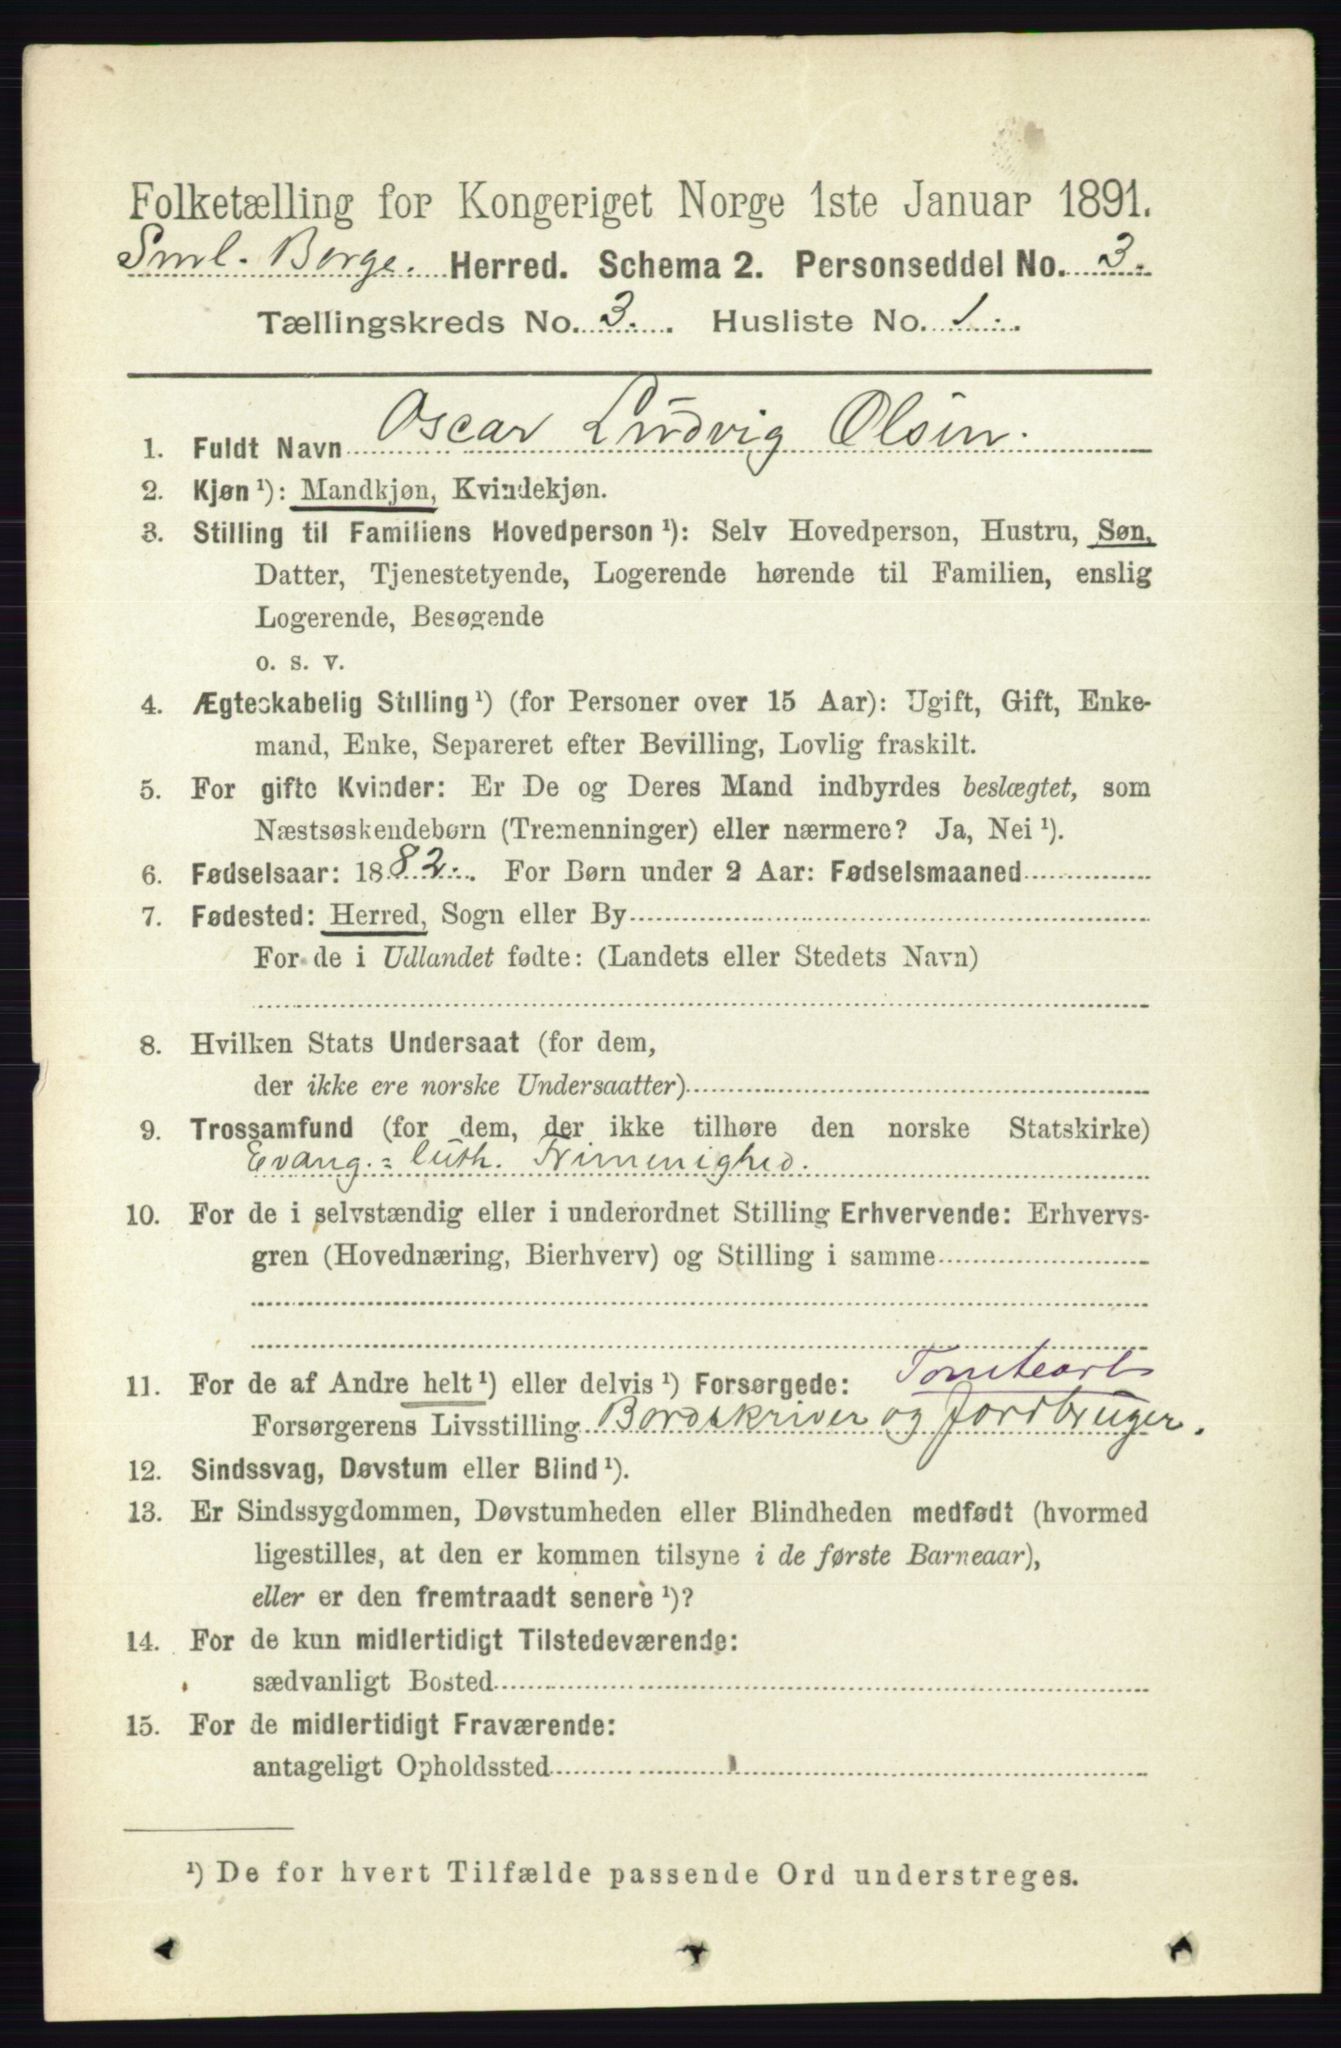 Folketælling for Kongeriget Norge 1ste Januar 1891.
Sml. Borge. Herred. Schema 2. Personseddel No. 3.
Tællingskreds No. 3. Husliste No. 1.
1. Fuldt Navn Oscar Ludvig Olsen.
2. Kjøn ¹): Mandkjøn, Kvindekjøn.
3. Stilling til Familiens Hovedperson ¹): Selv Hovedperson, Hustru, Søn,
Datter, Tjenestetyende, Logerende hørende til Familien, enslig
Logerende, Besøgende
o. s. v.
4. Ægteskabelig Stilling ¹) (for Personer over 15 Aar): Ugift, Gift, Enke-
mand, Enke, Separeret efter Bevilling, Lovlig fraskilt.
5. For gifte Kvinder: Er De og Deres Mand indbyrdes beslægtet, som
Næstsøskendebørn (Tremenninger) eller nærmere? Ja, Nei ¹).
6. Fødselsaar: 1882. For Børn under 2 Aar: Fødselsmaaned
7. Fødested: Herred, Sogn eller By
For de i Udlandet fødte: (Landets eller Stedets Navn)
8. Hvilken Stats Undersaat (for dem,
der ikke ere norske Undersaatter)
9. Trossamfund (for dem, der ikke tilhøre den norske Statskirke)
Evang.=luth. Frimenighed.
10. For de i selvstændig eller i underordnet Stilling Erhvervende: Erhvervs-
gren (Hovednæring, Bierhverv) og Stilling i samme
11. For de af Andre helt ¹) eller delvis ¹) Forsørgede: Tomtearb
Forsørgerens Livsstilling Bordskriver og Jordbruger.
12. Sindssvag, Døvstum eller Blind ¹).
13. Er Sindssygdommen, Døvstumheden eller Blindheden medfødt (hvormed
ligestilles, at den er kommen tilsyne i de første Barneaar),
eller er den fremtraadt senere ¹)?
14. For de kun midlertidigt Tilstedeværende:
sædvanligt Bosted
15. For de midlertidigt Fraværende:
antageligt Opholdssted
¹) De for hvert Tilfælde passende Ord understreges.